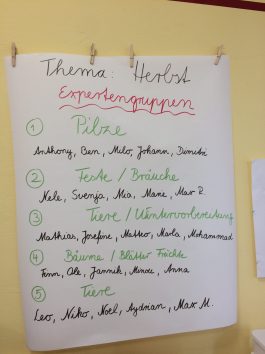 Thema: Herbst
Expertengruppen
1 Pilze
Anthony, Ben, Milo, Johann, Dimitri
2 Feste / Bräuche
Nele, Svenja, Mia, Mane, Max R.
3 Tiere / Wintervorbereitung
Mathias, Josefine, Matteo, Marla, Mohammad
4 Bäume / Blätter Früchte
Fynn, Ole, Jannik, Anna
5 Tiere
Leo, Niko, Noel, Aydrian, Max M.